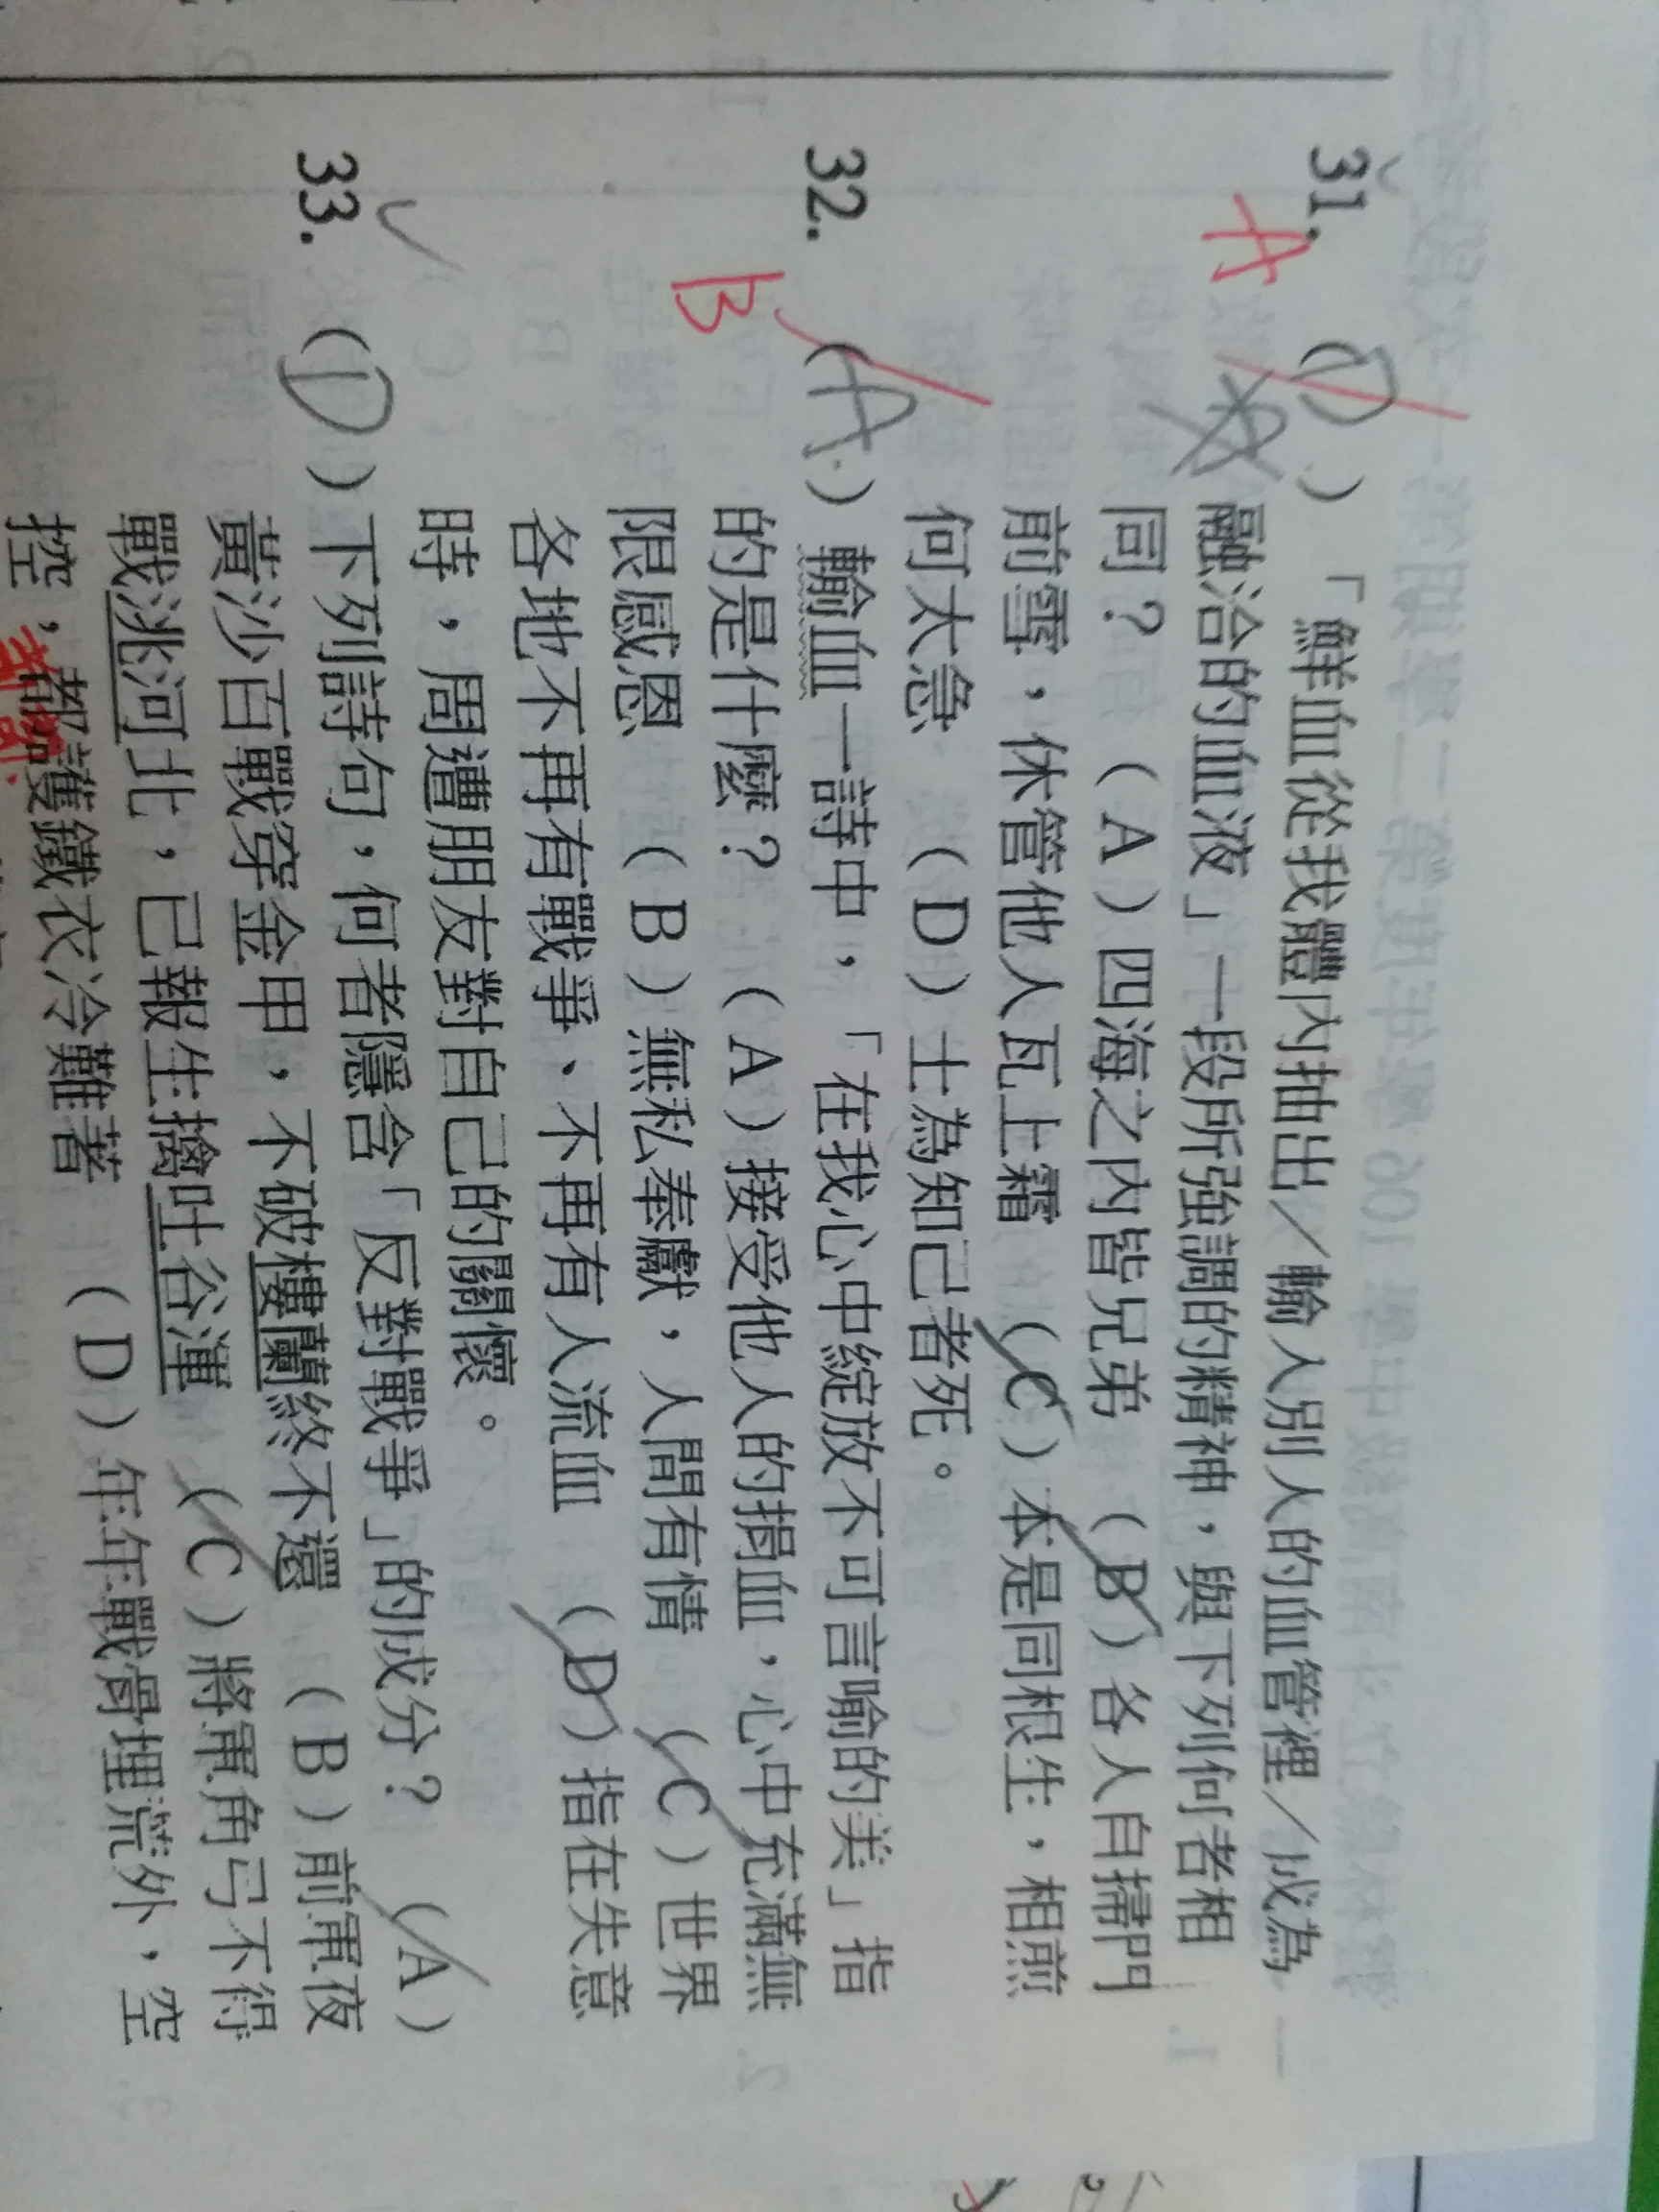 31. (D) 「鮮血從我體內抽出／輸入別人的血管裡／成為
A
融洽的血液」一段所強調的精神，與下列何者相
同？ (A)四海之內皆兄弟 (B)各人自掃門
前雪，休管他人瓦上霜 (C)本是同根生，相煎
何太急 (D)士為知己者死。
32. (A) 輸血一詩中，「在我心中綻放不可言喻的美」指
B
的是什麼？ (A)接受他人的捐血，心中充滿無
限感恩 (B)無私奉獻，人間有情 (C)世界
各地不再有戰爭、不再有人流血 (D)指在失意
時，周遭朋友對自己的關懷。
33. (D) 下列詩句，何者隱含「反對戰爭」的成分？ (A)
黃沙百戰穿金甲，不破樓蘭終不還 (B)前軍夜
戰洮河北，已報生擒吐谷渾 (C)將軍角弓不得
控，都護鐵衣冷難著 (D)年年戰骨埋荒外，空